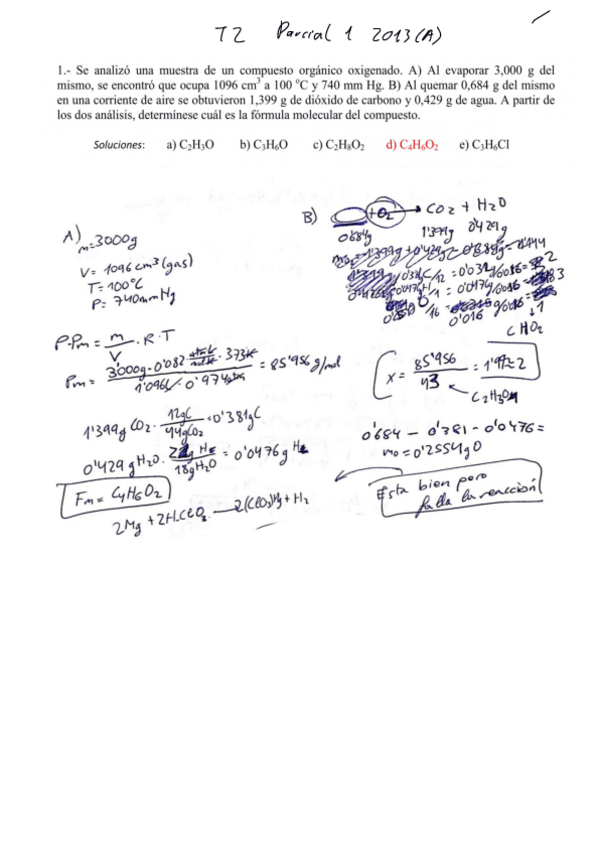 T2 Parcial 1 2013(A)
1.- Se analizó una muestra de un compuesto orgánico oxigenado. A) Al evaporar 3,000 g del
mismo, se encontró que ocupa 1096 cm³ a 100 °C y 740 mm Hg. B) Al quemar 0,684 g del mismo
en una corriente de aire se obtuvieron 1,399 g de dióxido de carbono y 0,429 g de agua. A partir de
los dos análisis, determínese cuál es la fórmula molecular del compuesto.
Soluciones: a) C₂H₃O b) C₃H₆O c) C₂H₈O₂ d) C₄H₆O₂ e) C₃H₆Cl
A) m=3000g
V= 1096 cm³ (gas)
T=100°C
P= 740mmHg
B) +O₂ → CO₂ + H₂O
0'684g 1'399g 0'429g
C HO₂
P·Pm = m/V · R·T
Pm = 3'000g·0'082 · 373K / 1'096L · 0'974atm = 85'956 g/mol
x = 85'956 / 43 = 1'9 ≈ 2
C₂H₃O
1'399g CO₂ · 12gC/44gCO₂ = 0'381gC
0'429 gH₂O · 2g H/18gH₂O = 0'0476 g H
0'684 - 0'381 - 0'0476 =
mo = 0'2554gO
Fm = C₄H₆O₂
Esta bien pero
falla la reacción